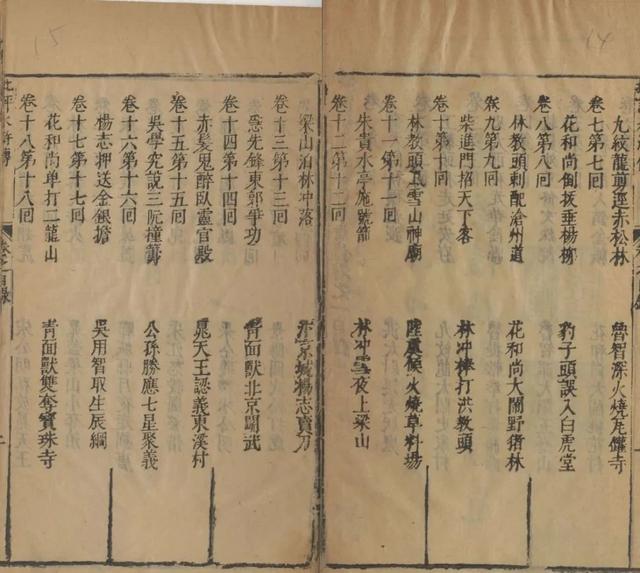 14
九紋龍剪逕赤松林 魯智深火燒瓦罐寺
卷七第七回
花和尚倒拔垂楊柳 豹子頭誤入白虎堂
卷八第八回
林教頭刺配滄州道 花和尚大鬧野猪林
卷九第九回
柴進門招天下客 林冲棒打洪教頭
卷十第十回
林教頭風雪山神廟 陸虞候火燒草料場
卷十一第十一回
朱貴水亭施號箭 林冲雪夜上梁山
卷十二第十二回
15
梁山泊林冲落 汴京城楊志賣刀
卷十三第十三回
急先鋒東郭爭功 青面獸北京鬭武
卷十四第十四回
赤髮鬼醉臥靈官殿 晁天王認義東溪村
卷十五第十五回
吳學究說三阮撞籌 公孫勝應七星聚義
卷十六第十六回
楊志押送金銀擔 吳用智取生辰綱
卷十七第十七回
花和尚單打二龍山 青面獸雙奪寶珠寺
卷十八第十八回
批評水滸傳